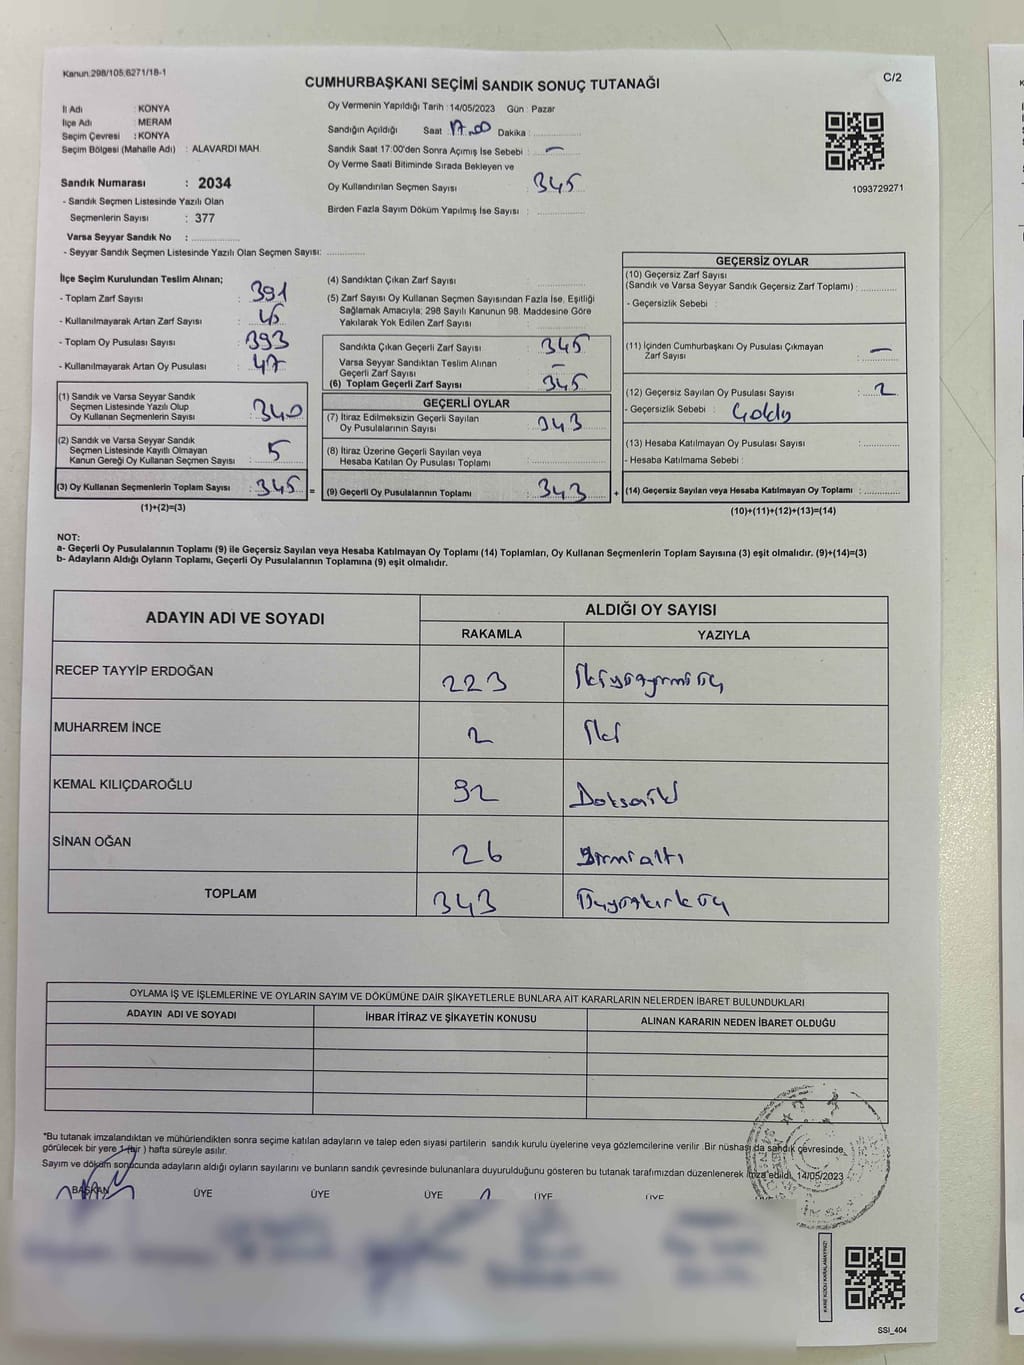 Kanun.298/105.6271/18-1
C/2
CUMHURBAŞKANI SEÇİMİ SANDIK SONUÇ TUTANAĞI
İl Adı : KONYA
İlçe Adı : MERAM
Seçim Çevresi : KONYA
Seçim Bölgesi (Mahalle Adı) : ALAVARDI MAH.
Sandık Numarası : 2034
- Sandık Seçmen Listesinde Yazılı Olan
Seçmenlerin Sayısı : 377
Varsa Seyyar Sandık No :
- Seyyar Sandık Seçmen Listesinde Yazılı Olan Seçmen Sayısı:
Oy Vermenin Yapıldığı Tarih : 14/05/2023 Gün : Pazar
Sandığın Açıldığı Saat : 17.00 Dakika :
Sandık Saat 17:00'den Sonra Açımış İse Sebebi : –
Oy Verme Saati Bitiminde Sırada Bekleyen ve
Oy Kullandırılan Seçmen Sayısı : 345
Birden Fazla Sayım Döküm Yapılmış İse Sayısı :
1093729271
İlçe Seçim Kurulundan Teslim Alınan;
- Toplam Zarf Sayısı : 391
- Kullanılmayarak Artan Zarf Sayısı :
- Toplam Oy Pusulası Sayısı : 393
- Kullanılmayarak Artan Oy Pusulası : 47
(1) Sandık ve Varsa Seyyar Sandık
Seçmen Listesinde Yazılı Olup
Oy Kullanan Seçmenlerin Sayısı : 340
(2) Sandık ve Varsa Seyyar Sandık
Seçmen Listesinde Kayıtlı Olmayan
Kanun Gereği Oy Kullanan Seçmen Sayısı : 5
(3) Oy Kullanan Seçmenlerin Toplam Sayısı : 345 =
(1)+(2)=(3)
(4) Sandıktan Çıkan Zarf Sayısı :
(5) Zarf Sayısı Oy Kullanan Seçmen Sayısından Fazla İse, Eşitliği
Sağlamak Amacıyla; 298 Sayılı Kanunun 98. Maddesine Göre
Yakılarak Yok Edilen Zarf Sayısı :
Sandıkta Çıkan Geçerli Zarf Sayısı : 345
Varsa Seyyar Sandıktan Teslim Alınan
Geçerli Zarf Sayısı : –
(6) Toplam Geçerli Zarf Sayısı : 345
GEÇERLİ OYLAR
(7) İtiraz Edilmeksizin Geçerli Sayılan
Oy Pusulalarının Sayısı : 343
(8) İtiraz Üzerine Geçerli Sayılan veya
Hesaba Katılan Oy Pusulası Toplamı :
(9) Geçerli Oy Pusulalarının Toplamı : 343 +
GEÇERSİZ OYLAR
(10) Geçersiz Zarf Sayısı
(Sandık ve Varsa Seyyar Sandık Geçersiz Zarf Toplamı) :
- Geçersizlik Sebebi :
(11) İçinden Cumhurbaşkanı Oy Pusulası Çıkmayan
Zarf Sayısı : –
(12) Geçersiz Sayılan Oy Pusulası Sayısı : 2
- Geçersizlik Sebebi :
(13) Hesaba Katılmayan Oy Pusulası Sayısı :
- Hesaba Katılmama Sebebi :
(14) Geçersiz Sayılan veya Hesaba Katılmayan Oy Toplamı :
(10)+(11)+(12)+(13)=(14)
NOT:
a- Geçerli Oy Pusulalarının Toplamı (9) ile Geçersiz Sayılan veya Hesaba Katılmayan Oy Toplamı (14) Toplamları, Oy Kullanan Seçmenlerin Toplam Sayısına (3) eşit olmalıdır. (9)+(14)=(3)
b- Adayların Aldığı Oyların Toplamı, Geçerli Oy Pusulalarının Toplamına (9) eşit olmalıdır.
ADAYIN ADI VE SOYADI ALDIĞI OY SAYISI
RAKAMLA YAZIYLA
RECEP TAYYİP ERDOĞAN 223 İkiyüzyirmiüç
MUHARREM İNCE 2 İki
KEMAL KILIÇDAROĞLU 92 Doksaniki
SİNAN OĞAN 26 Yirmialtı
TOPLAM 343 Üçyüzkırküç
OYLAMA İŞ VE İŞLEMLERİNE VE OYLARIN SAYIM VE DÖKÜMÜNE DAİR ŞİKAYETLERLE BUNLARA AİT KARARLARIN NELERDEN İBARET BULUNDUKLARI
ADAYIN ADI VE SOYADI İHBAR İTİRAZ VE ŞİKAYETİN KONUSU ALINAN KARARIN NEDEN İBARET OLDUĞU
*Bu tutanak imzalandıktan ve mühürlendikten sonra seçime katılan adayların ve talep eden siyasi partilerin sandık kurulu üyelerine veya gözlemcilerine verilir .Bir nüshası da sandık çevresinde,
görülecek bir yere 1 (bir ) hafta süreyle asılır.
Sayım ve döküm sonucunda adayların aldığı oyların sayılarını ve bunların sandık çevresinde bulunanlara duyurulduğunu gösteren bu tutanak tarafımızdan düzenlenerek imza edildi. 14/05/2023
BAŞKAN ÜYE ÜYE ÜYE ÜYE ÜYE
KARE KODU KARALAMAYINIZ!
SSİ_404